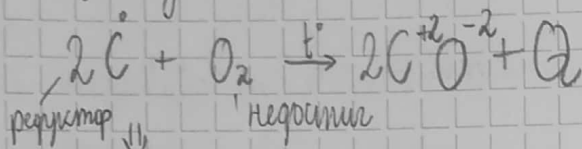 2C⁰ + O₂ →t° 2C⁺²O⁻² + Q
редуктор недостиг